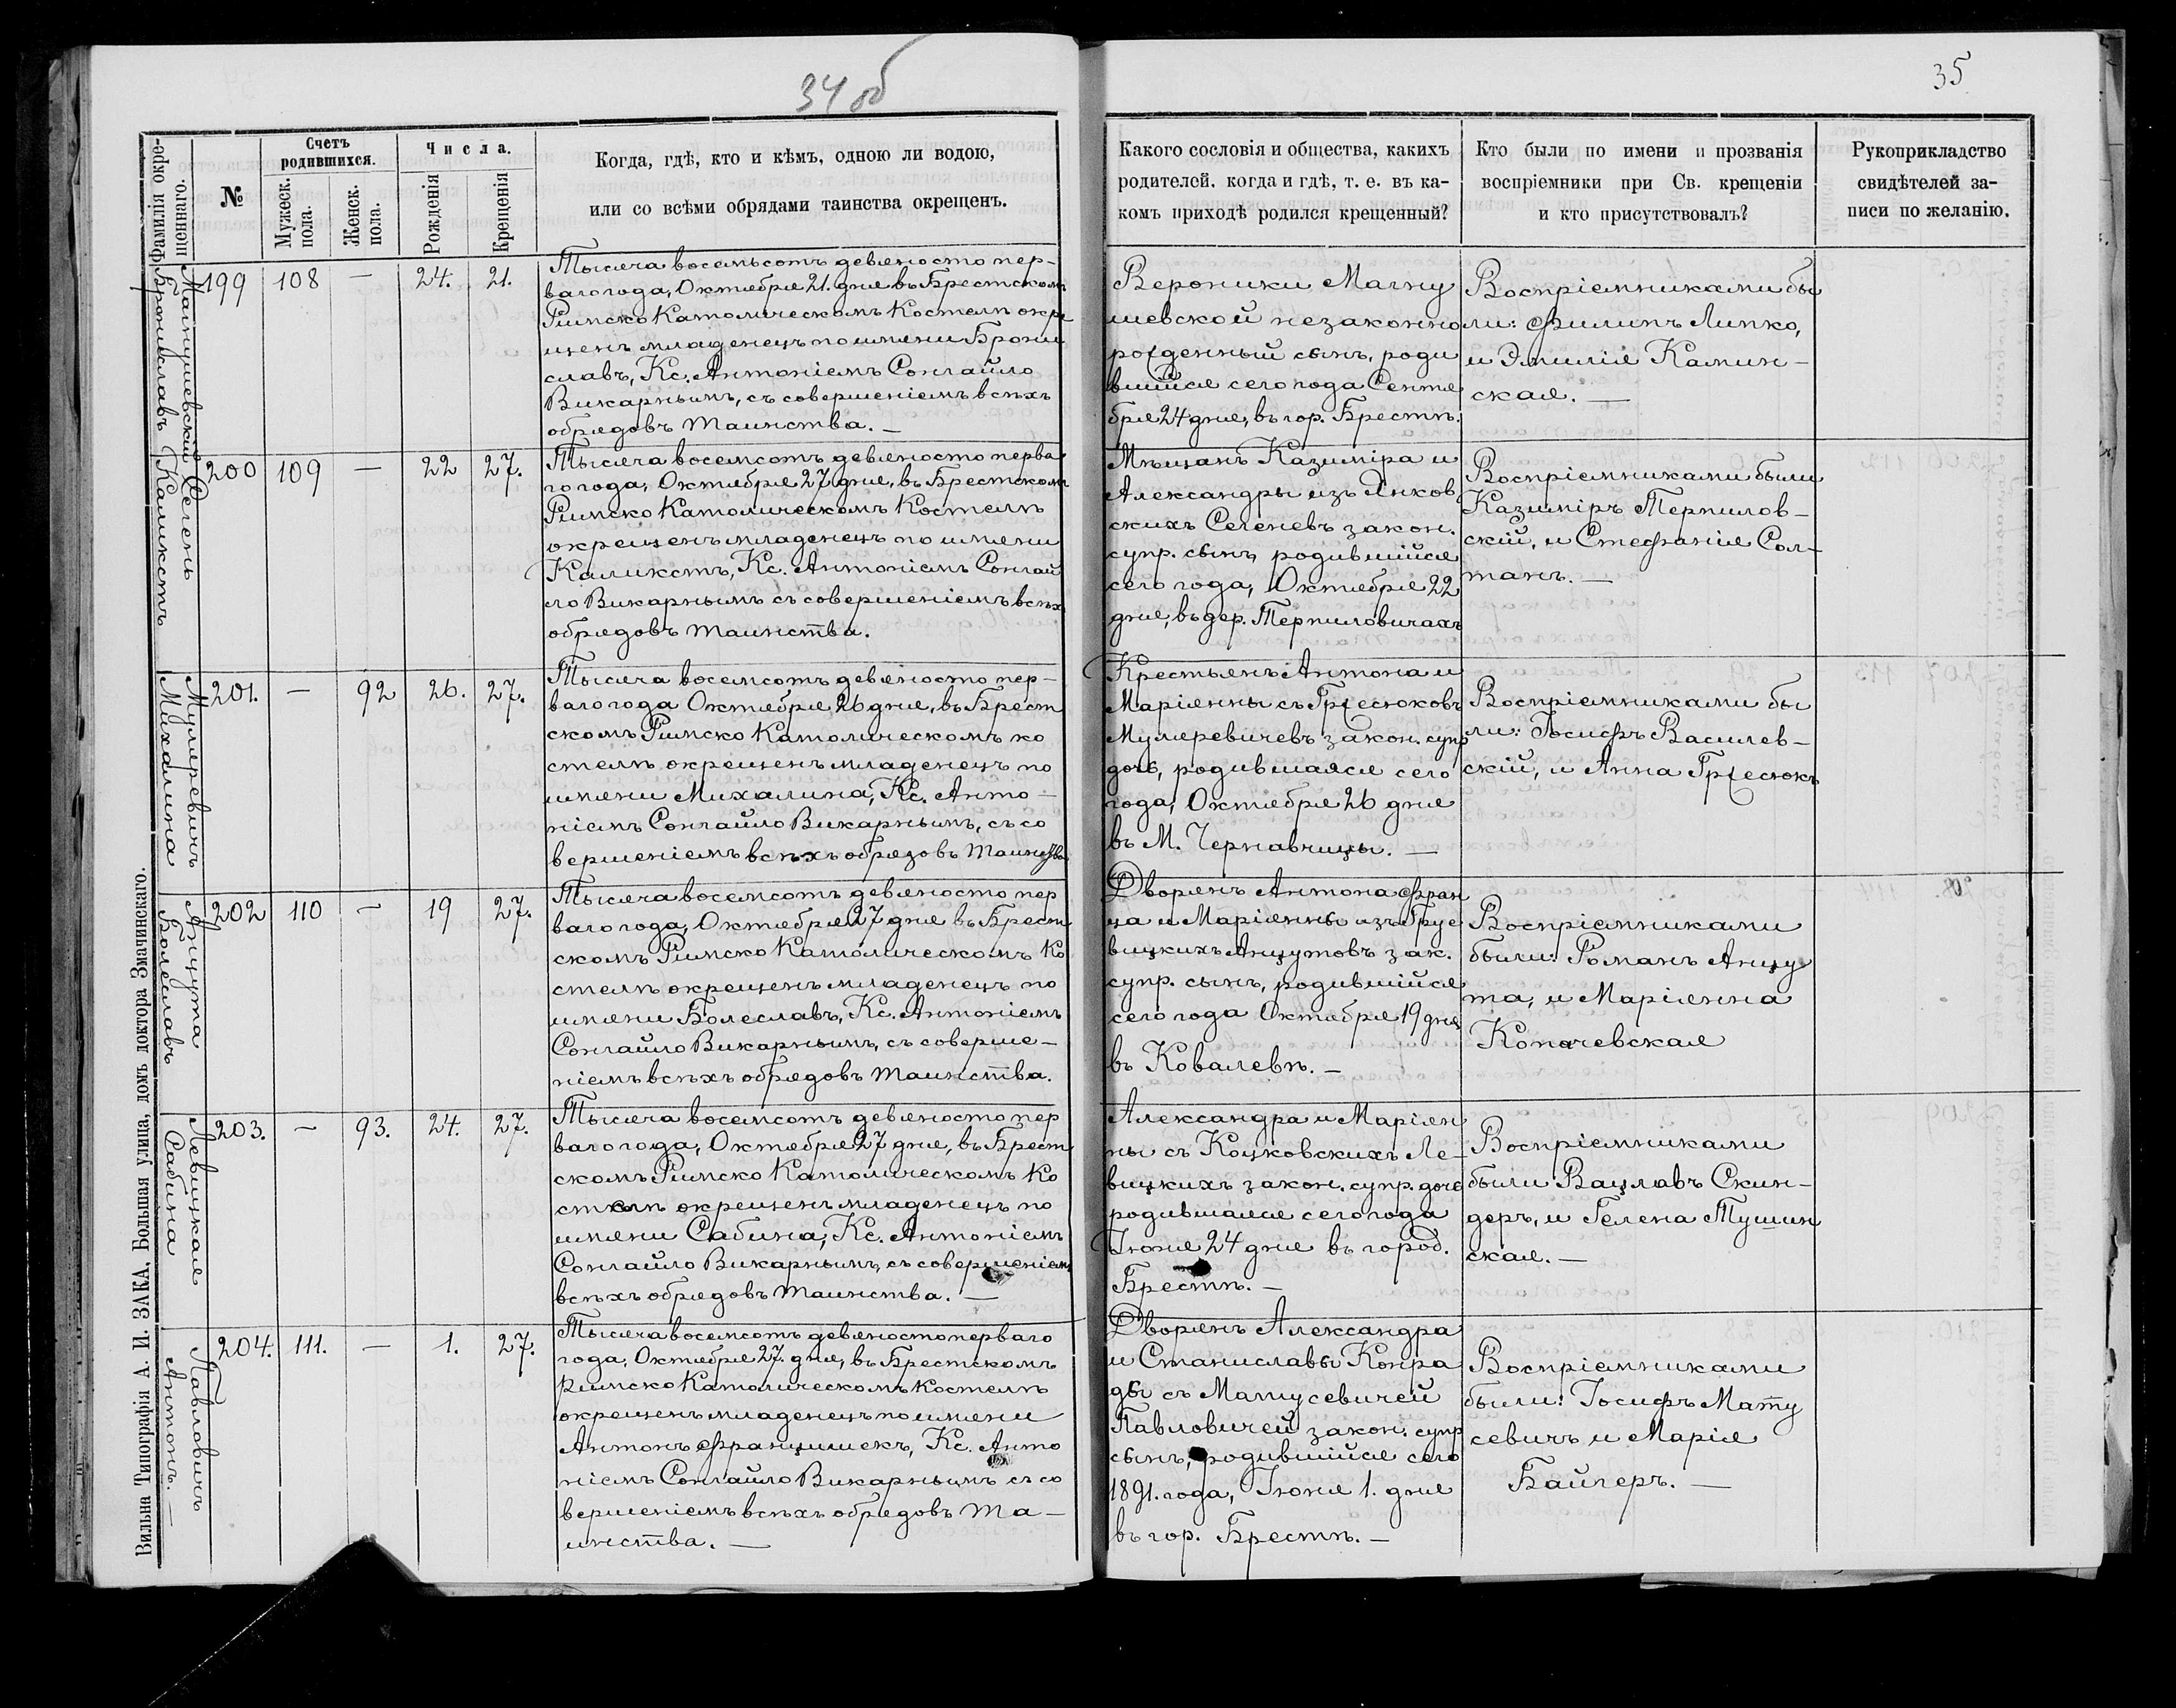 34 об
35
Фамилія окре-
щеннаго.
№
Счетъ
родившихся.
Мужеск.
пола.
Женск.
пола.
Числа.
Рожденія
Крещенія
Когда, гдѣ, кто и кѣмъ, одною ли водою,
или со всѣми обрядами таинства окрещенъ.
Какого сословія и общества, какихъ
родителей, когда и гдѣ, т. е. въ ка-
комъ приходѣ родился крещенный?
Кто были по имени и прозванія
воспріемники при Св. крещеніи
и кто присутствовалъ?
Рукоприкладство
свидѣтелей за-
писи по желанію.
Магнушевскій
Брониславъ
199 108 — 24. 21.
Тысяча восемьсотъ девяносто пер-
ваго года, Октября 21. дня въ Брестскомъ
Римско Католическомъ Костелѣ окре
щенъ младенецъ по имени Брони
славъ, Кс. Антоніемъ Сонгайло
Викарнымъ, съ совершеніемъ всѣхъ
обрядовъ таинства. —
Вероники Магну
шевской незаконно
рожденный сынъ, роди
вшійся сего года Сентя
бря 24 дня, въ гор. Брестѣ.
Воспріемниками бы
ли: Филипъ Липко,
и Эмилія Камин-
ская. —
Сегень
Каликстъ
200 109 — 22 27.
Тысяча восемсотъ девяносто перва
го года, Октября 27 дня, въ Брестскомъ
Римско Католическомъ Костелѣ
окрещенъ младенецъ по имени
Каликстъ, Кс. Антоніемъ Сонгай
ло Викарнымъ съ совершеніемъ всѣхъ
обрядовъ таинства.
Мѣщанъ Казиміра и
Александры изъ Янков
скихъ Сегеневъ закон.
супр. сынъ, родившійся
сего года, Октября 22
дня, въ дер. Терпиловичахъ
Воспріемниками были
Казиміръ Терпилов-
скій, и Стефанія Сол-
танъ. —
Мулеревичъ
Михалина
201. — 92 26. 27.
Тысяча восемсотъ девяносто пер-
ваго года Октября 26 дня, въ Брест
скомъ Римско Католическомъ ко
стелѣ окрещенъ младенецъ по
имени Михалина, Кс. Анто-
ніемъ Сонгайло Викарнымъ, съ со
вершеніемъ всѣхъ обрядовъ таинства
Крестьянъ Антона и
Маріянны съ Гржесюковъ
Мулеревичевъ закон. супр
дочь, родившаяся сего
года, Октября 26 дня
въ М. Чернавчицы. —
Воспріемниками бы
ли: Іосифъ Василев-
скій, и Анна Гржесюкъ
Анцута
Болеславъ
202 110 — 19 27.
Тысяча восемсотъ девяносто пер
ваго года, Октября 27 дня въ Брест
скомъ Римско Католическомъ Ко
стелѣ окрещенъ младенецъ по
имени Болеславъ, Кс. Антоніемъ
Сонгайло Викарнымъ, съ соверше-
ніемъ всѣхъ обрядовъ таинства.
Дворянъ Антона Фран
ца и Маріянны изъ
вицкихъ Анцутовъ зак.
супр. сынъ, родившійся
сего года Октября 19 дня
въ Ковалевѣ. —
Воспріемниками
были: Романъ Анцу
та, и Маріянна
Копачевская
Левицкая
Сабина
203. — 93. 24. 27.
Тысяча восемсотъ девяносто пер
ваго года, Октября 27 дня, въ Брест
скомъ Римско Католическомъ Ко
стелѣ окрещенъ младенецъ по
имени Сабина, Кс. Антоніемъ
Сонгайло Викарнымъ, съ совершеніемъ
всѣхъ обрядовъ таинства. —
Александра и Маріян
ны съ Коцковскихъ Ле-
вицкихъ закон. супр. дочь
родившаяся сего года
Іюня 24 дня въ город.
Брестѣ. —
Воспріемниками
были Вацлавъ Скин-
деръ, и Гелена Тушин
ская. —
Павловичъ
Антонъ. —
204. 111. — 1. 27.
Тысяча восемсотъ девяносто перваго
года, Октября 27. дня, въ Брестскомъ
Римско Католическомъ Костелѣ
окрещенъ младенецъ по имени
Антонъ Францишекъ, Кс. Анто
ніемъ Сонгайло Викарнымъ съ со
вершеніемъ всѣхъ обрядовъ та-
инства. —
Дворянъ Александра
и Станиславы Конра
ды съ Матусевичей
Павловичей закон. супр
сынъ, родившійся сего
1891. года, Іюня 1. дня
въ гор. Брестѣ. —
Воспріемниками
были: Іосифъ Мату
севичъ и Марія
Байгеръ. —
Вильна Типографія А. И. ЗАКА, Большая улица, домъ доктора Змачинскаго.